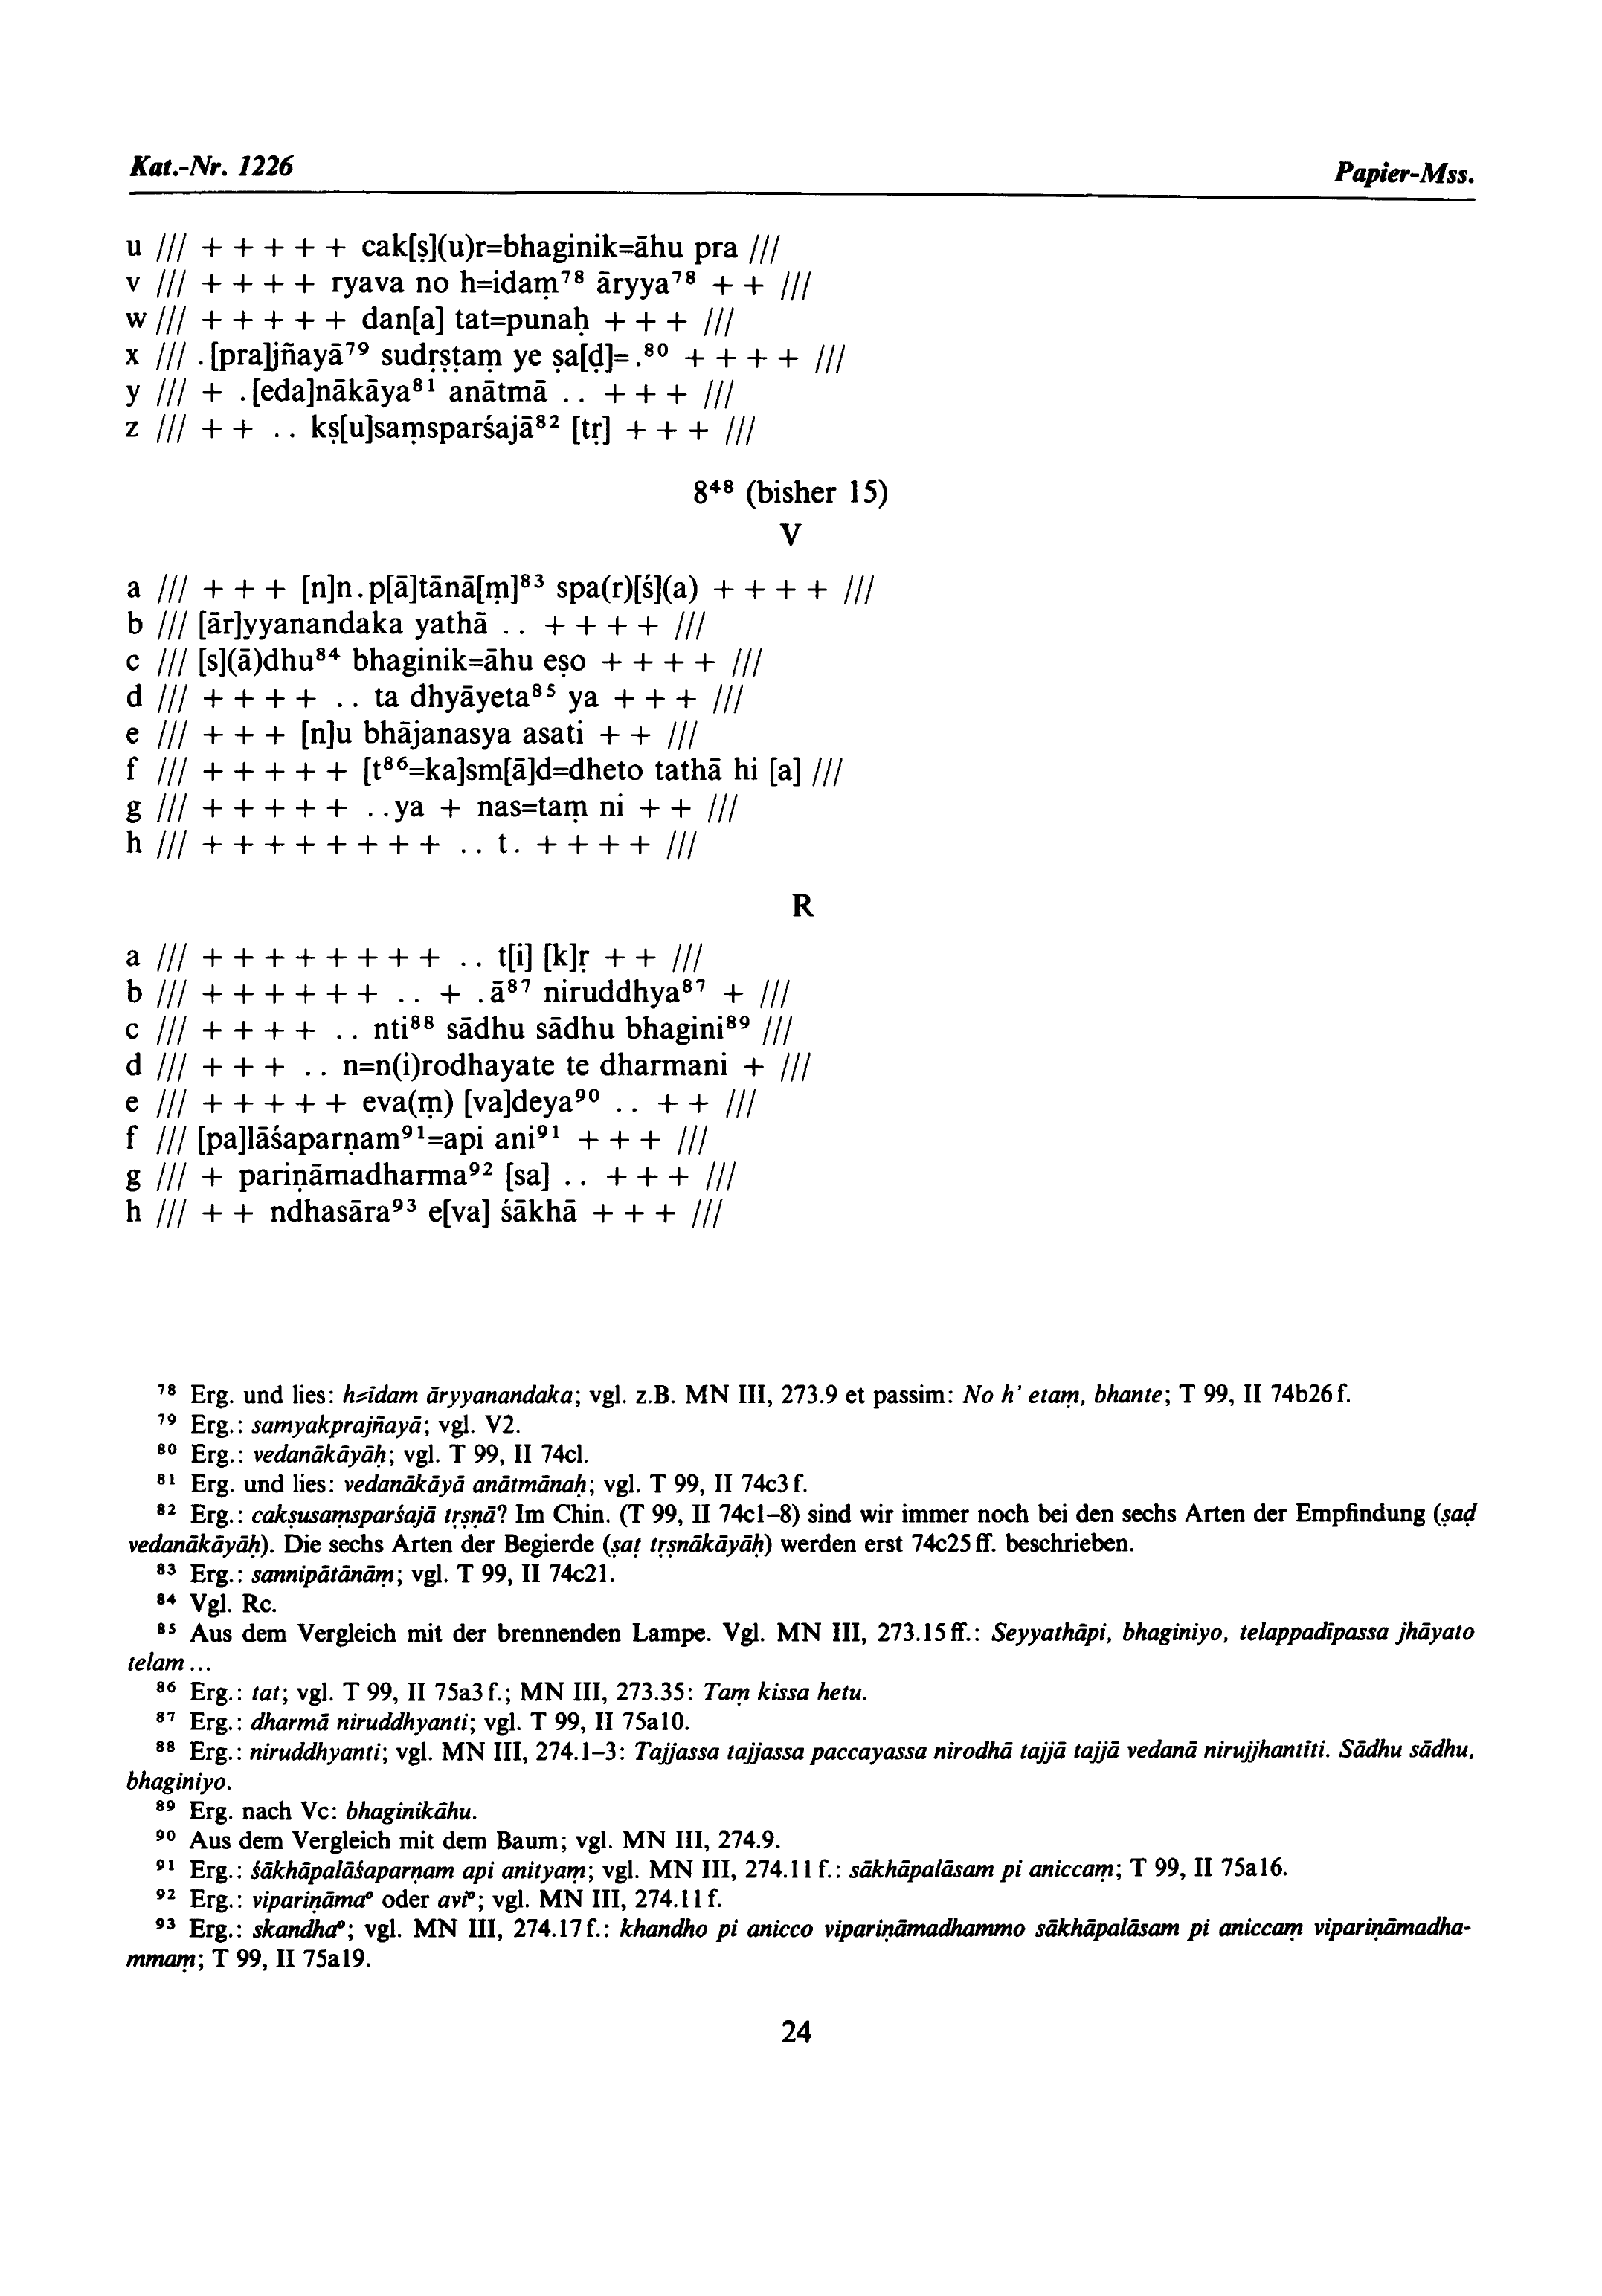 Kat.-Nr. 1226
Papier-Mss.
u /// + + + + + cak[ṣ](u)r=bhaginik=āhu pra ///
v /// + + + + ryava no h=idaṃ⁷⁸ āryya⁷⁸ + + ///
w /// + + + + + dan[a] tat=punaḥ + + + ///
x /// . [pra]jñayā⁷⁹ sudṛṣṭaṃ ye ṣa[ḍ]= .⁸⁰ + + + + ///
y /// + . [eda]nākāya⁸¹ anātmā . . + + + ///
z /// + + . . kṣ[u]saṃsparśajā⁸² [tṛ] + + + ///
8⁴⁸ (bisher 15)
V
a /// + + + [n]n . p[ā]tānā[ṃ]⁸³ spa(r)[ś](a) + + + + ///
b /// [ār]yyanandaka yathā . . + + + + ///
c /// [s](ā)dhu⁸⁴ bhaginik=āhu eṣo + + + + ///
d /// + + + + . . ta dhyāyeta⁸⁵ ya + + + ///
e /// + + + [n]u bhājanasya asati + + ///
f /// + + + + + [t⁸⁶=ka]sm[ā]d=dheto tathā hi [a] ///
g /// + + + + + . . ya + nas=taṃ ni + + ///
h /// + + + + + + + + . . t. + + + + ///
R
a /// + + + + + + + + . . t[i] [k]ṛ + + ///
b /// + + + + + + . . + . ā⁸⁷ niruddhya⁸⁷ + ///
c /// + + + + . . nti⁸⁸ sādhu sādhu bhagini⁸⁹ ///
d /// + + + . . n=n(i)rodhayate te dharmani + ///
e /// + + + + + eva(ṃ) [va]deya⁹⁰ . . + + ///
f /// [pa]lāśaparṇam⁹¹=api ani⁹¹ + + + ///
g /// + pariṇāmadharma⁹² [sa] . . + + + ///
h /// + + ndhasāra⁹³ e[va] śākhā + + + ///
⁷⁸ Erg. und lies: h=idam āryyanandaka; vgl. z.B. MN III, 273.9 et passim: No h' etaṃ, bhante; T 99, II 74b26 f.
⁷⁹ Erg.: samyakprajñayā; vgl. V2.
⁸⁰ Erg.: vedanākāyāḥ; vgl. T 99, II 74c1.
⁸¹ Erg. und lies: vedanākāyā anātmānaḥ; vgl. T 99, II 74c3 f.
⁸² Erg.: cakṣusaṃsparśajā tṛṣṇā? Im Chin. (T 99, II 74c1–8) sind wir immer noch bei den sechs Arten der Empfindung (ṣaḍ
vedanākāyāḥ). Die sechs Arten der Begierde (ṣaṭ tṛṣnākāyāḥ) werden erst 74c25 ff. beschrieben.
⁸³ Erg.: sannipātānāṃ; vgl. T 99, II 74c21.
⁸⁴ Vgl. Rc.
⁸⁵ Aus dem Vergleich mit der brennenden Lampe. Vgl. MN III, 273.15 ff.: Seyyathāpi, bhaginiyo, telappadīpassa jhāyato
telam ...
⁸⁶ Erg.: tat; vgl. T 99, II 75a3 f.; MN III, 273.35: Taṃ kissa hetu.
⁸⁷ Erg.: dharmā niruddhyanti; vgl. T 99, II 75a10.
⁸⁸ Erg.: niruddhyanti; vgl. MN III, 274.1–3: Tajjassa tajjassa paccayassa nirodhā tajjā tajjā vedanā nirujjhantīti. Sādhu sādhu,
bhaginiyo.
⁸⁹ Erg. nach Vc: bhaginikāhu.
⁹⁰ Aus dem Vergleich mit dem Baum; vgl. MN III, 274.9.
⁹¹ Erg.: śākhāpalāśaparṇam api anityaṃ; vgl. MN III, 274.11 f.: sākhāpalāsam pi aniccaṃ; T 99, II 75a16.
⁹² Erg.: vipariṇāma° oder avi°; vgl. MN III, 274.11 f.
⁹³ Erg.: skandha°; vgl. MN III, 274.17 f.: khandho pi anicco vipariṇāmadhammo sākhāpalāsam pi aniccaṃ vipariṇāmadha-
mmaṃ; T 99, II 75a19.
24